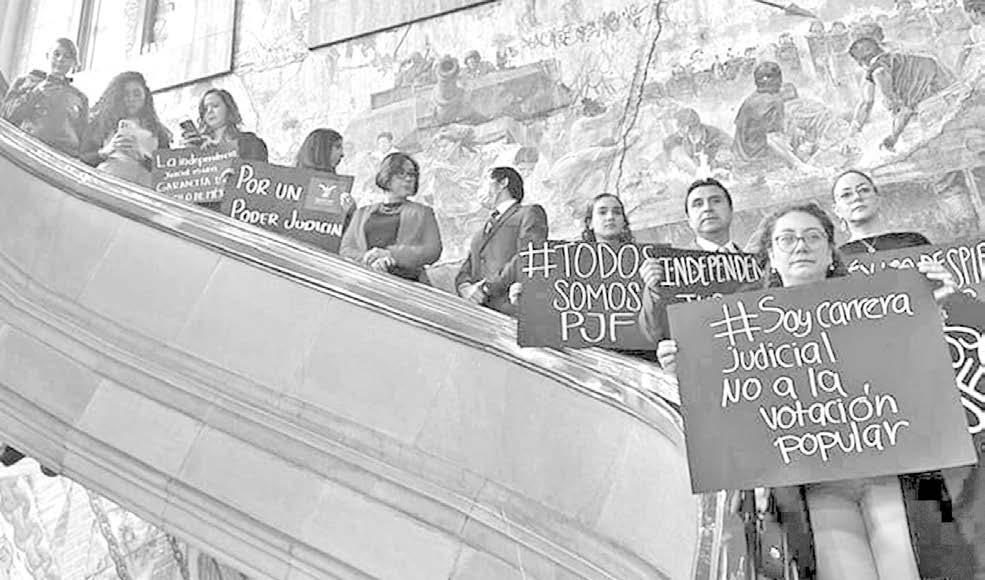 La independencia
Judicial es una
GARANTÍA
POR UN
PODER JUDICIAL
#TODOS
SOMOS
PJF
INDEPENDEN
RESPI
#Soy carrera
judicial
NO a la
votación
popular